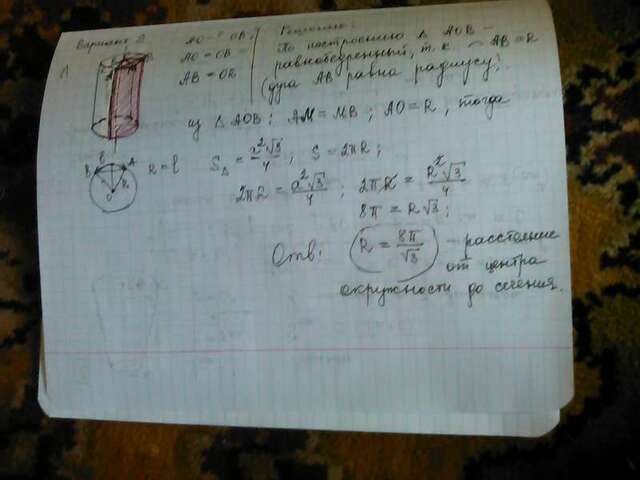 Вариант 2
AO = OB;
AO = OB =
AB = OR
Решение:
По построению Δ AOB –
равнобедренный, т.к. ⌒ AB = R
(дуга AB равна радиусу)
1
из Δ AOB; AM = MB; AO = R, тогда
R = l
S△ = a²√3/4; S = 2πR;
2πR = a²√3/4; 2πR = R²√3/4
8π = R√3;
Отв: R = 8π/√3 – расстояние
от центра
окружности до сечения.
B
A
O
R